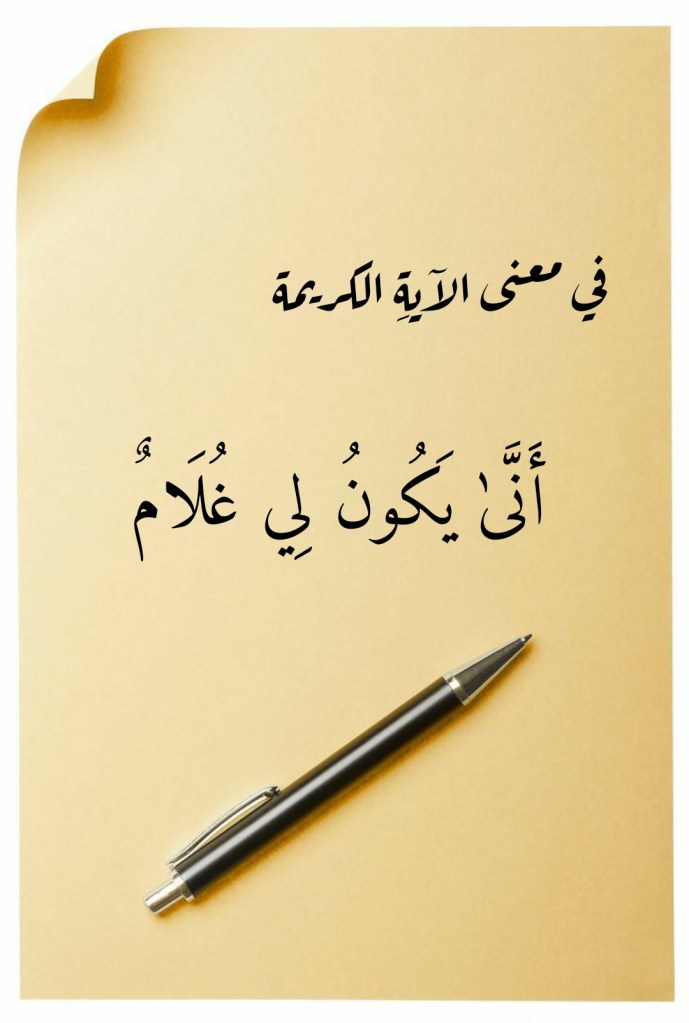 في معنى الآيةِ الكريمة
أَنَّىٰ يَكُونُ لِي غُلَامٌ